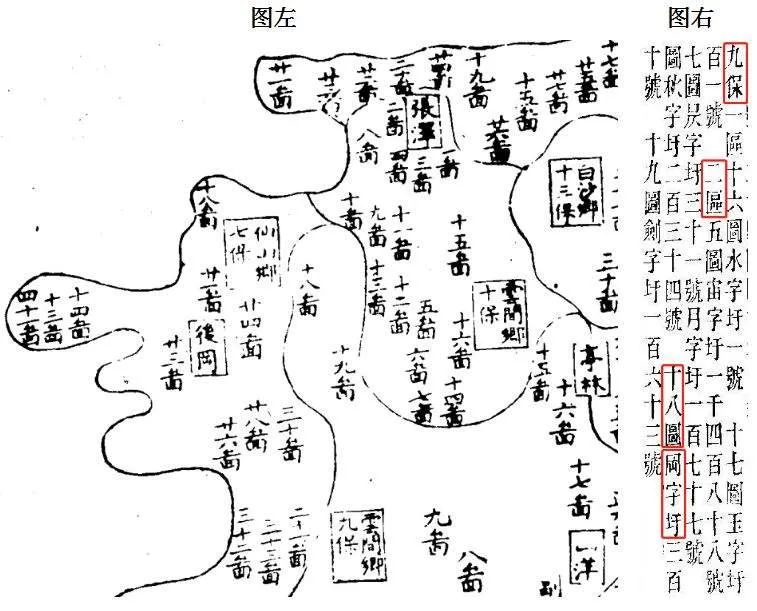 图左
图右
廿一啚
廿二啚
二十啚
十九啚
十七啚
廿五啚
廿七啚
十五啚
二啚
張澤
八啚
四啚
三啚
一啚
白沙鄉
十三保
十八啚
仙山鄉
七保
十啚
九啚
十一啚
十五啚
三十啚
十四啚
十三啚
四十啚
廿一啚
廿四啚
十八啚
十三啚
十二啚
雲間鄉
十保
廿三啚
後岡
五啚
十六啚
十九啚
六啚
七啚
十四啚
十五啚
亭林
廿八啚
三十啚
廿六啚
十六啚
十七啚
三十二啚
三十三啚
二十一啚
雲間鄉
九保
九啚
八啚
九保一區十六圖水字圩一號 十七圖玉字圩
百一號 二區五圖宙字圩一千四百八十八號
七圖昃字圩三十一號月字圩一百七十七號
圖秋字圩二百三十四號 十八圖岡字圩三百
十號 十九圖劍字圩一百六十三號